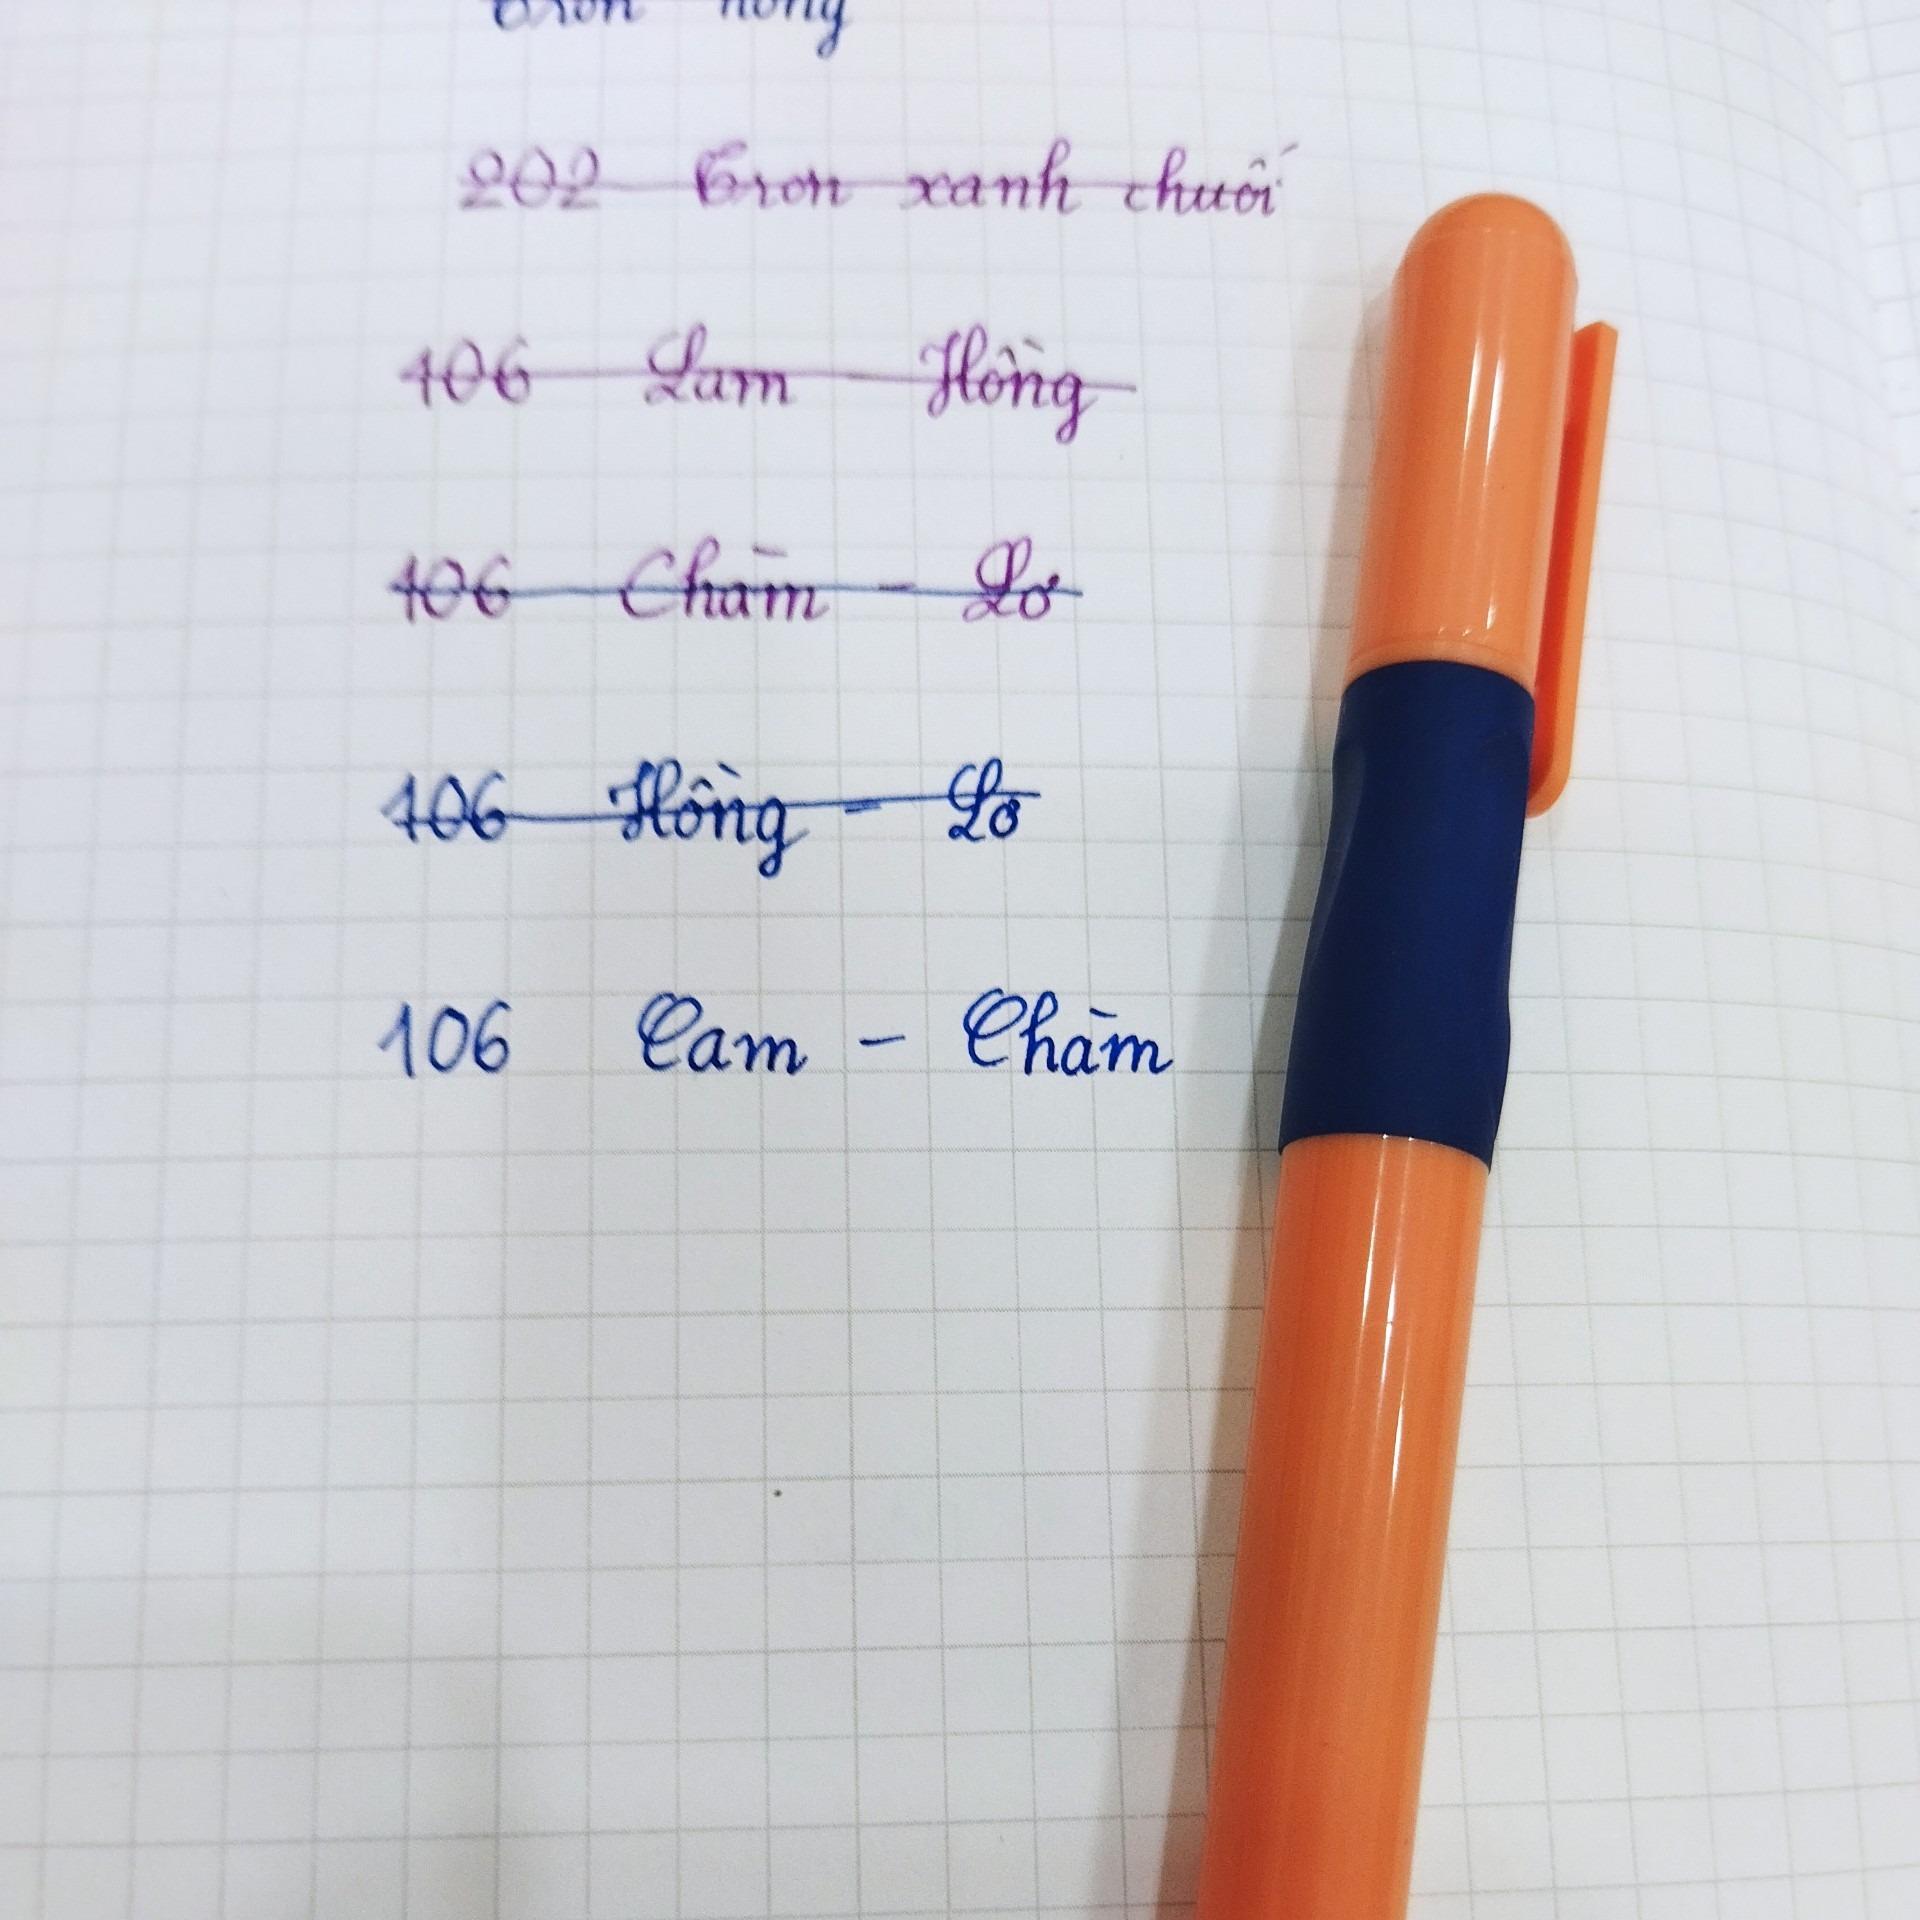 Trơn hồng
202 Trơn xanh chuối
106 Lam - Hồng
106 Chàm - Lơ
106 Hồng - Lơ
106 Cam - Chàm